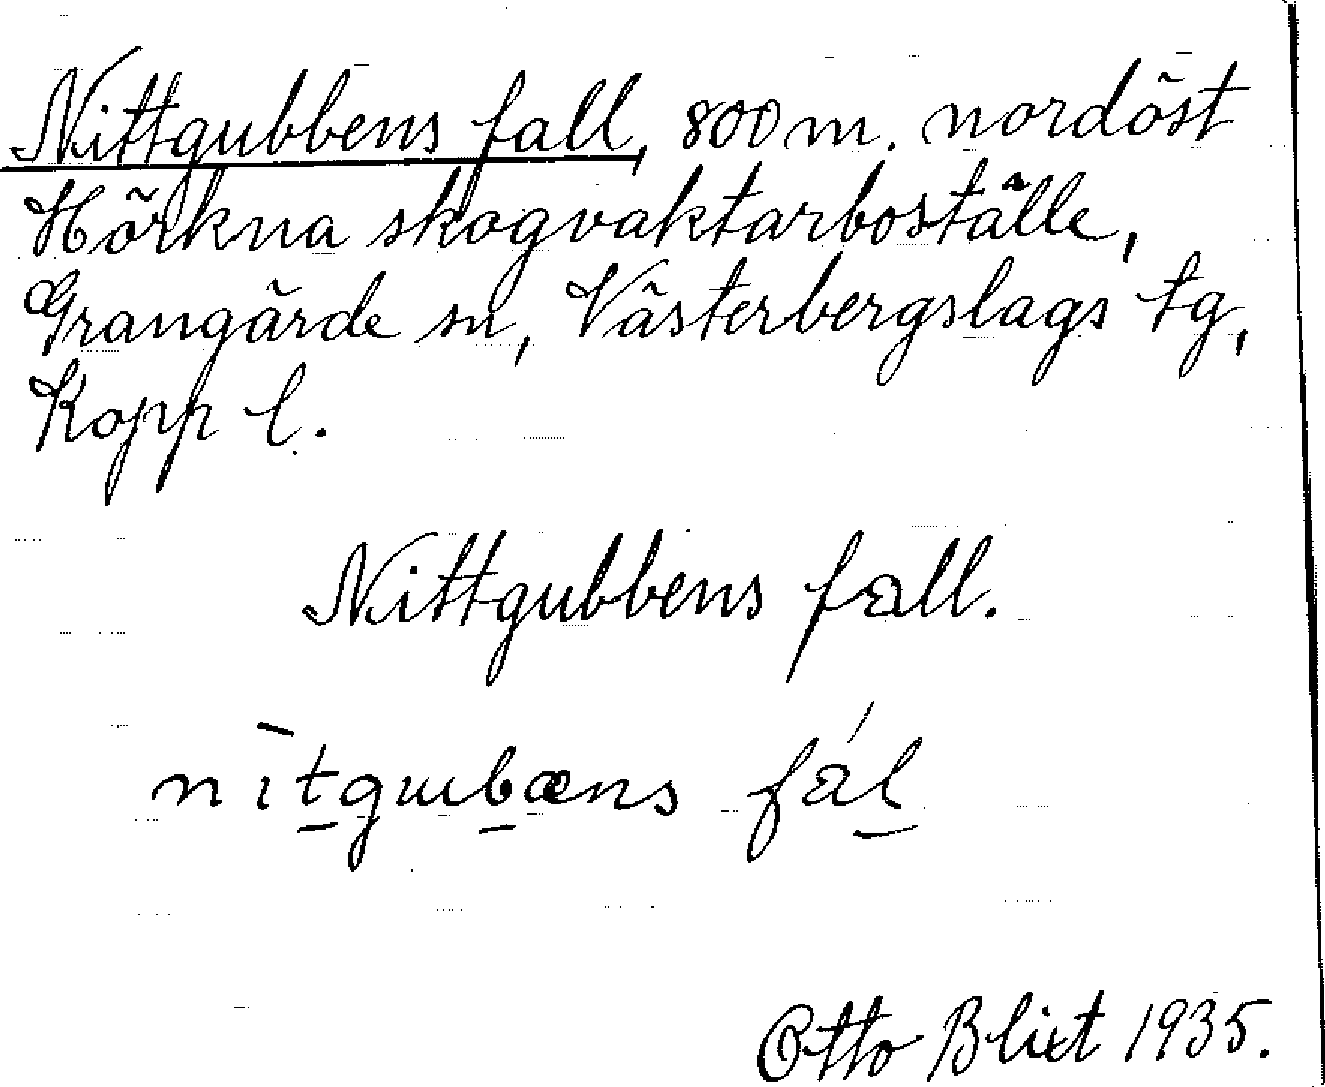 Nittgubbens fall, 800 m. nordöst
Hörkna skogvaktarboställe,
Grangärde sn, Västerbergslags tg,
Kopp l.
Nittgubbens fall.
nìt̲gɯb̲æns fál̲
Otto Blixt 1935.